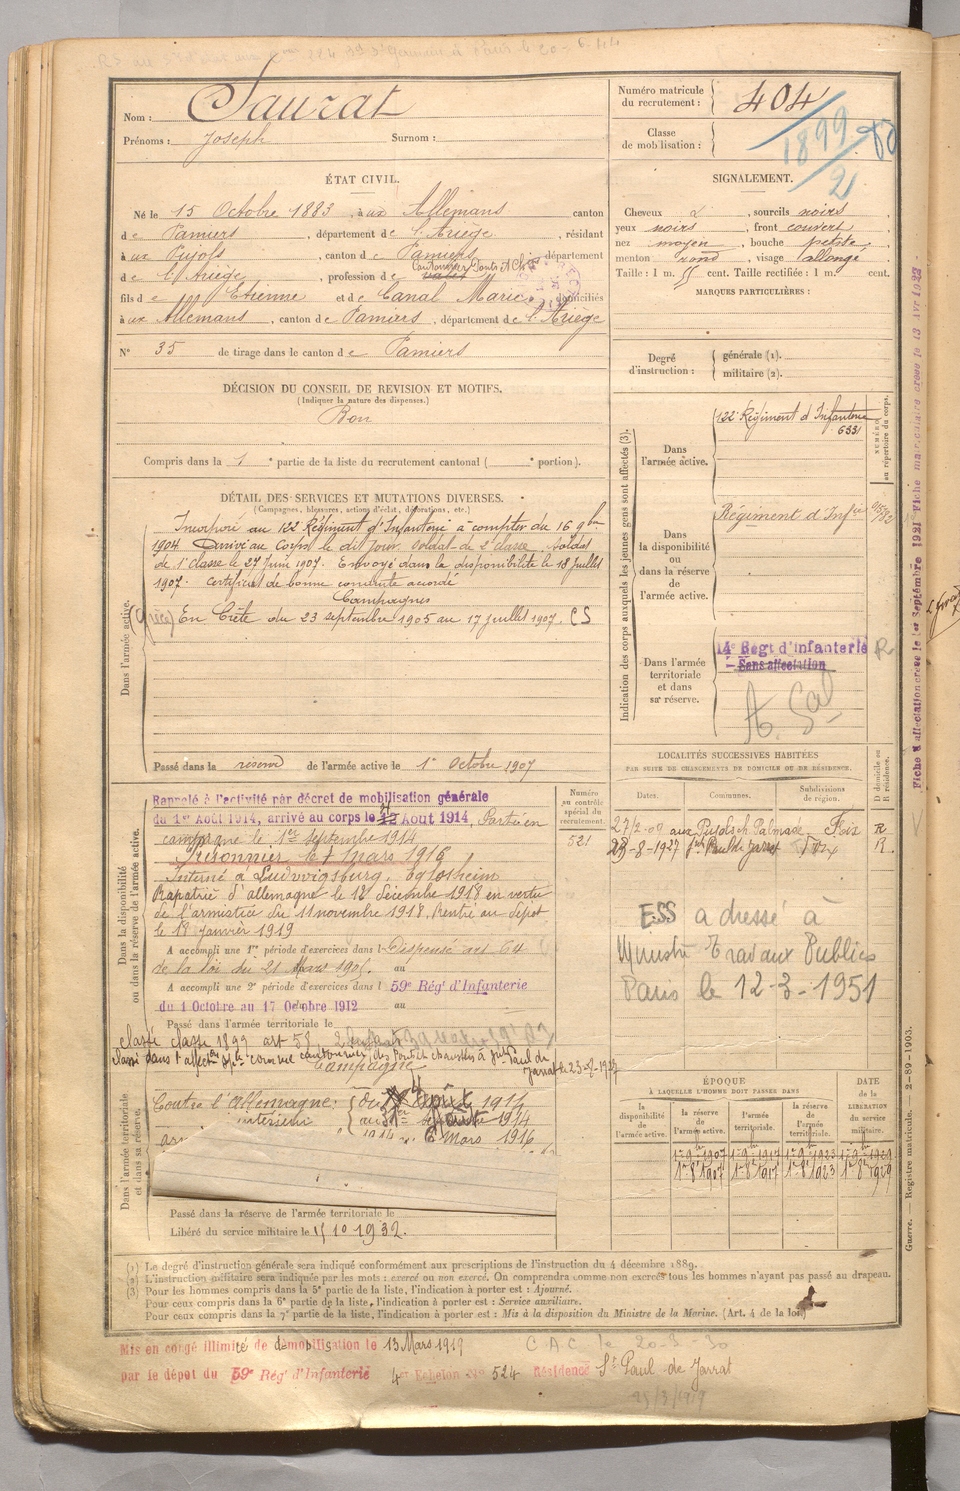 Nom : Saurat
Prénoms : Joseph Surnom :
Numéro matricule du recrutement : 404
Classe de mobilisation : 1899
2
ÉTAT CIVIL.
Né le 15 Octobre 1883, à ux Allemans canton
de Pamiers, département de l'Ariège, résidant
à ux Pujols, canton de Pamiers, département
de l'Ariège, profession de Cantonnier Ponts et Ch
fils de Etienne et de Canal Marie domiciliés
à ux Allemans, canton de Pamiers, département de l'Ariège
N° 35 de tirage dans le canton de Pamiers
SIGNALEMENT.
Cheveux , sourcils noirs,
yeux noirs, front couvert,
nez moyen, bouche petite,
menton rond, visage allongé
Taille : 1 m. 55 cent. Taille rectifiée : 1 m. cent.
MARQUES PARTICULIÈRES :
Degré d'instruction : générale (1).
militaire (2).
DÉCISION DU CONSEIL DE REVISION ET MOTIFS.
(Indiquer la nature des dispenses.)
Bon
Compris dans la 1e partie de la liste du recrutement cantonal ( e portion).
DÉTAIL DES SERVICES ET MUTATIONS DIVERSES.
(Campagnes, blessures, actions d'éclat, décorations, etc.)
Dans l'armée active.
Incorporé au 122 Régiment d'Infanterie à compter du 16 9bre
1904 Arrivé au Corps le dit jour. soldat de 2e classe. Soldat
de 1e classe le 27 Juin 1907. Envoyé dans la disponibilité le 18 Juillet
1907. Certificat de bonne conduite accordé
Campagnes
(Grèce) En Crète du 23 septembre 1905 au 17 juillet 1907. CS
Passé dans la réserve de l'armée active le 1er Octobre 1907
Indication des corps auxquels les jeunes gens sont affectés (3).
NUMÉRO au répertoire du corps.
Dans l'armée active.
122e Régiment d'Infanterie
6331
Dans la disponibilité ou dans la réserve de l'armée active.
Régiment d'Infie
Dans l'armée territoriale et dans sa réserve.
14e Regt d'infanterie
Sans affectation
Dans la disponibilité ou dans la réserve de l'armée active.
Rappelé à l'activité par décret de mobilisation générale
du 1er Août 1914, arrivé au corps le Aout 1914, Parti en
campagne le 1er septembre 1914
Prisonnier le 7 mars 1916
Interné à Ludwigsburg, Eglosheim
Rapatrié d'allemagne le 12 décembre 1918 en vertu
de l'armistice du 11 novembre 1918, Rentré au dépôt
le 18 janvier 1919
A accompli une 1re période d'exercices dans l Dispensé art 64
de la loi du 21 Mars 1905. au
A accompli une 2e période d'exercices dans l 59e Régt d'Infanterie
du 1 Octobre au 17 Octobre 1912 au
Passé dans l'armée territoriale le
classé classe 1899 art 58
classé dans l'affecton spéle comme cantonnier des Ponts et chaussées à St Paul de
Jarrat le 23-8-1927
Dans l'armée territoriale et dans sa réserve.
Campagne
Contre l'Allemagne : du Août 1914
intérieur au septembre 1914
Mars 1916
Passé dans la réserve de l'armée territoriale le
Libéré du service militaire le 15 10 1932.
Numéro au contrôle spécial du recrutement.
521
LOCALITÉS SUCCESSIVES HABITÉES
PAR SUITE DE CHANGEMENTS DE DOMICILE OU DE RÉSIDENCE.
Dates. Communes. Subdivisions de région. D domicile ou R résidence.
27-2-09 aux Pujols ch Palmade Foix R
23-8-1927 St Paul de Jarrat Foix R.
ESS adressé à
Ministre Travaux Publics
Paris le 12-3-1951
ÉPOQUE
À LAQUELLE L'HOMME DOIT PASSER DANS
la disponibilité de l'armée active. la réserve de l'armée active. l'armée territoriale. la réserve de l'armée territoriale. DATE de la LIBÉRATION du service militaire.
(1) Le degré d'instruction générale sera indiqué conformément aux prescriptions de l'instruction du 4 décembre 1889.
(2) L'instruction militaire sera indiquée par les mots : exercé ou non exercé. On comprendra comme non exercés tous les hommes n'ayant pas passé au drapeau.
(3) Pour les hommes compris dans la 5e partie de la liste, l'indication à porter est : Ajourné.
Pour ceux compris dans la 6e partie de la liste, l'indication à porter est : Service auxiliaire.
Pour ceux compris dans la 7e partie de la liste, l'indication à porter est : Mis à la disposition du Ministre de la Marine. (Art. 4 de la loi.)
Mis en congé illimité de démobilisation le 13 Mars 1919
par le dépot du 59e Régt d'Infanterie 4er Echelon No 524 Résidence St Paul de Jarrat
C.A.C. le 20-3-30
Guerre. — Registre matricule. 2-89-1903.
Fiche d'affectation créée le 1er Septembre 1921 Fiche matriculaire créée le 13 Avr 1922